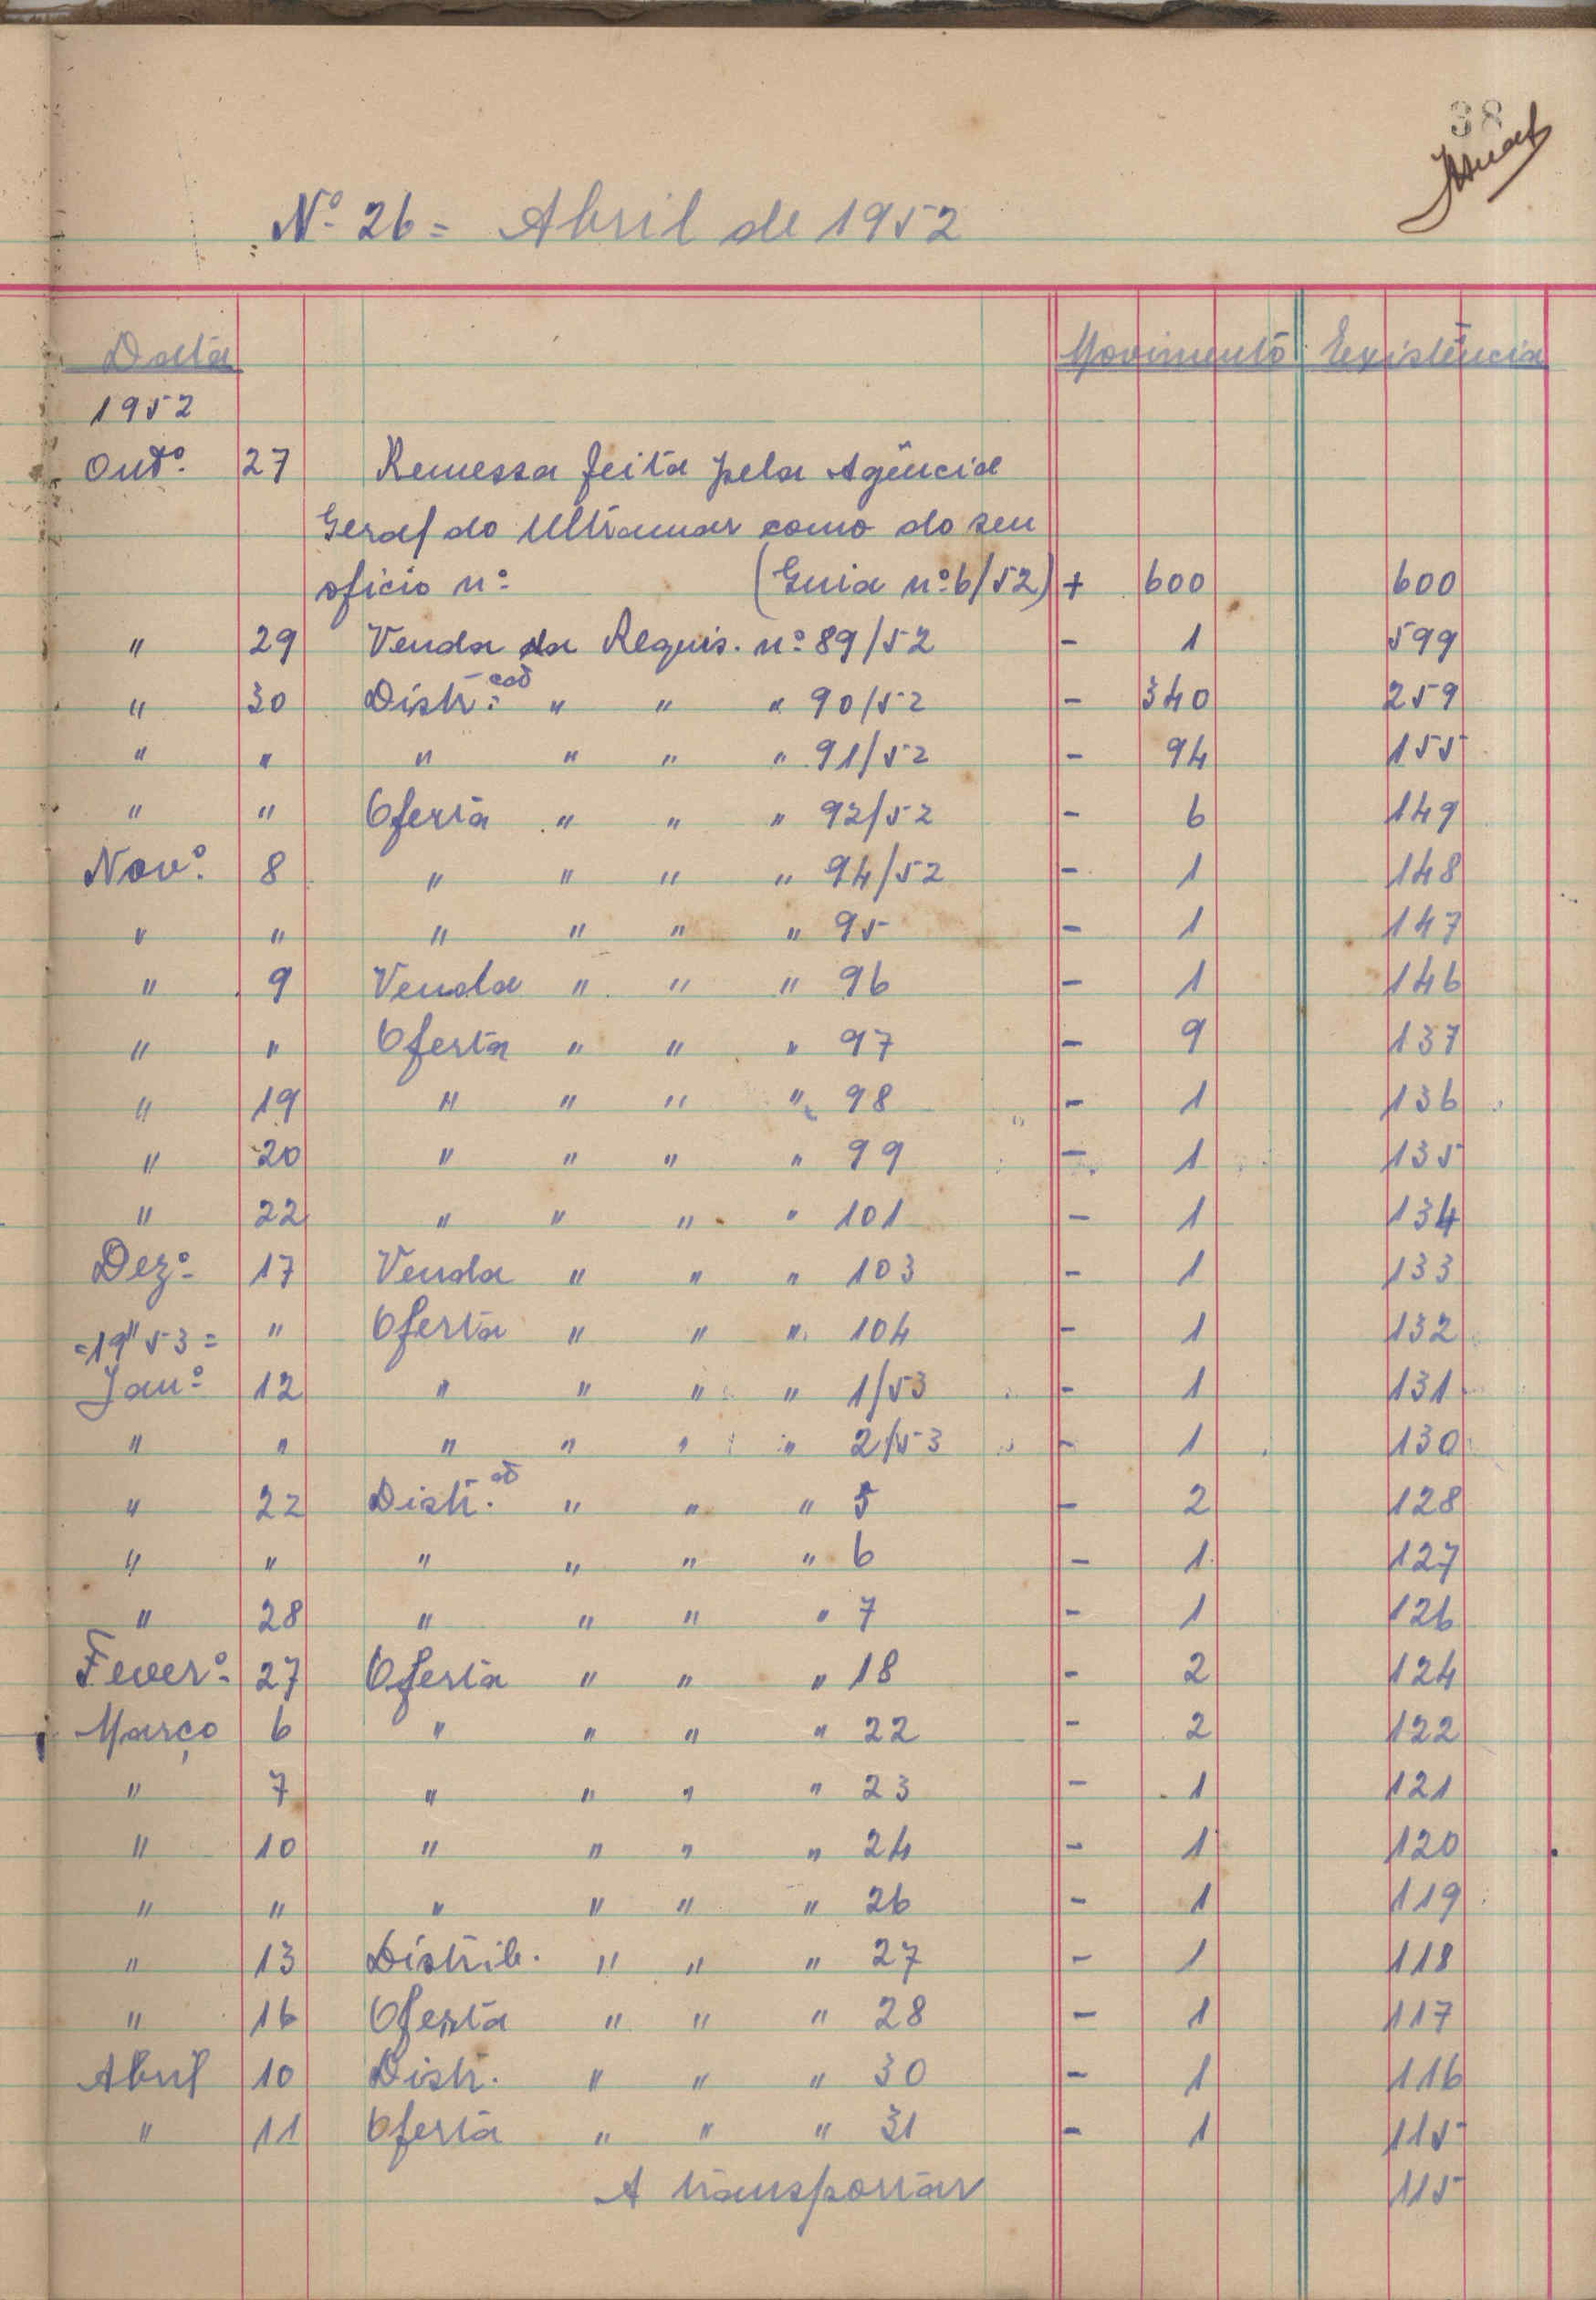 38
Nº 26 = Abril de 1952
Data Movimento Existência
1952
Outº. 27 Remessa feita pela Agência
Geral do Ultramar como do seu
ofício nº (Guia nº 6/52) + 600 600
" 29 Venda da Requis. nº 89/52 - 1 599
" 30 Distr. ção " " " 90/52 - 340 259
" " " " " " 91/52 - 94 155
" " Oferta " " " 92/52 - 6 149
Novº. 8 " " " " 94/52 - 1 148
" " " " " " 95 - 1 147
" 9 Venda " " " 96 - 1 146
" " Oferta " " " 97 - 9 137
" 19 " " " " 98 - 1 136
" 20 " " " " 99 - 1 135
" 22 " " " " 101 - 1 134
Dezº 17 Venda " " " 103 - 1 133
" " Oferta " " " 104 - 1 132
=1953=
Janº 12 " " " " 1/53 - 1 131
" " " " " " 2/53 - 1 130
" 22 Distr. ão " " " 5 - 2 128
" " " " " " 6 - 1 127
" 28 " " " " 7 - 1 126
Feverº 27 Oferta " " " 18 - 2 124
Março 6 " " " " 22 - 2 122
" 7 " " " " 23 - 1 121
" 10 " " " " 24 - 1 120
" " " " " " 26 - 1 119
" 13 Distrib. " " " 27 - 1 118
" 16 Oferta " " " 28 - 1 117
Abril 10 Distr. " " " 30 - 1 116
" 11 Oferta " " " 31 - 1 115
A transportar 115